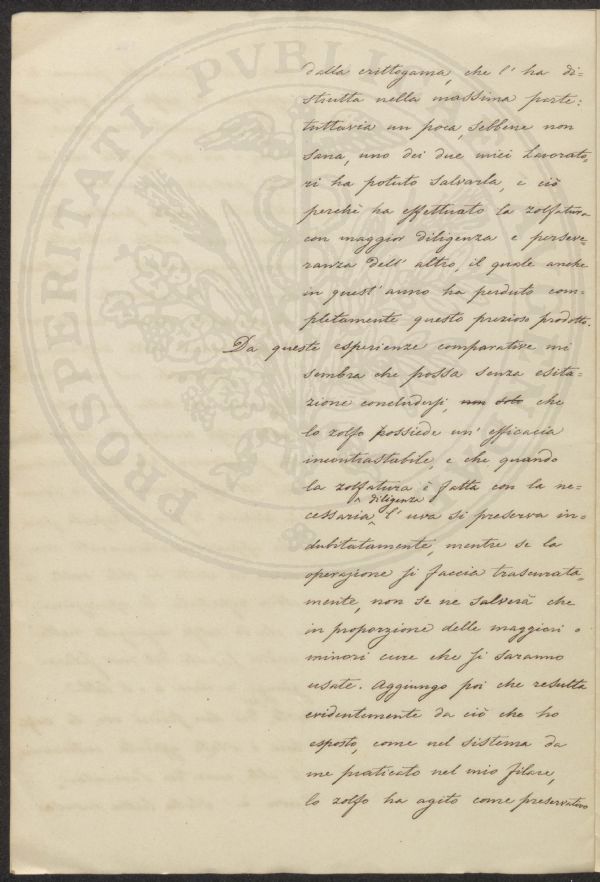 dalla crittogama, che l' ha di=
strutta nella massima parte:
tuttavia un poca, sebbene non
sana, uno dei due miei Lavorato=
ri ha potuto salvarla, e ciò
perchè ha effettuato la zolfatura
con maggior diligenza e perseve=
ranza dell' altro, il quale anche
in quest' anno ha perduto com=
pletamente questo prezioso prodotto.
Da queste esperienze comparative mi
sembra che possa senza esita=
zione concludersi, non solo che
lo zolfo possiede un' efficacia
incontrastabile, e che quando
la zolfatura è fatta con la ne=
diligenza
cessaria, l' uva si preserva in=
dubitatamente, mentre se la
operazione si faccia trascurata=
mente, non se ne salverà che
in proporzione delle maggiori o
minori cure che si saranno
usate. Aggiungo poi che resulta
evidentemente da ciò che ho
esposto, come nel sistema da
me praticato nel mio filare,
lo zolfo ha agito come preservativo
PROSPERITATI PVBLICAE